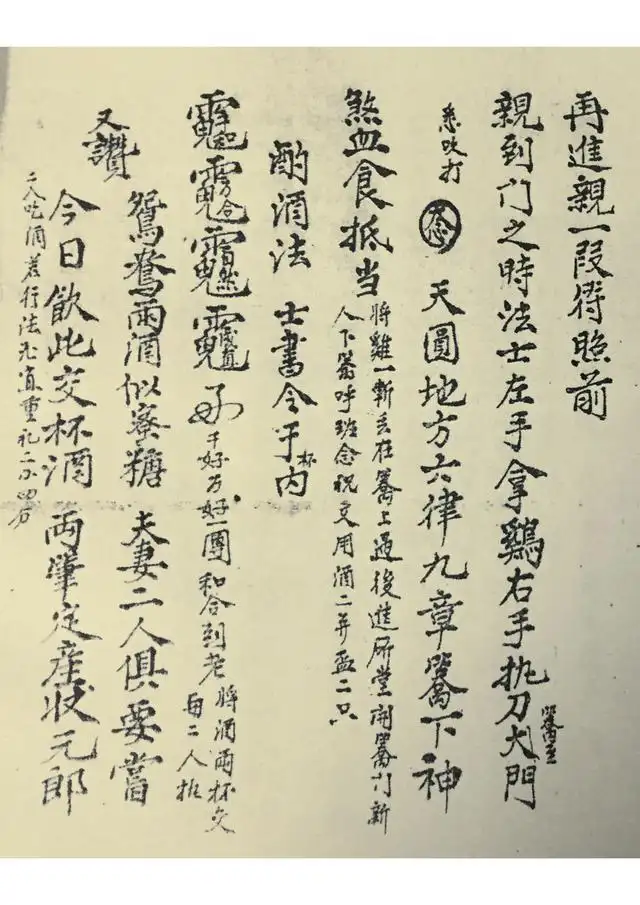 再進親一段符照前
親到门之時法士左手拿鷄右手执刀大門
悉吹打 念 天圓地方六律九章 下神
煞血食抵当
將雞一斬丢在 上過後進所堂開 门新
人下 呼班念祝文用酒二并盃二只
酌酒法 士書令于杯内
好千好万好一團和合到老 將酒兩杯交
与二人执
又讚 鴛鴦兩酒似蜜糖 夫妻二人俱要當
今日飲此交杯酒 両肇定產状元郎
二人吃酒 行法 重礼